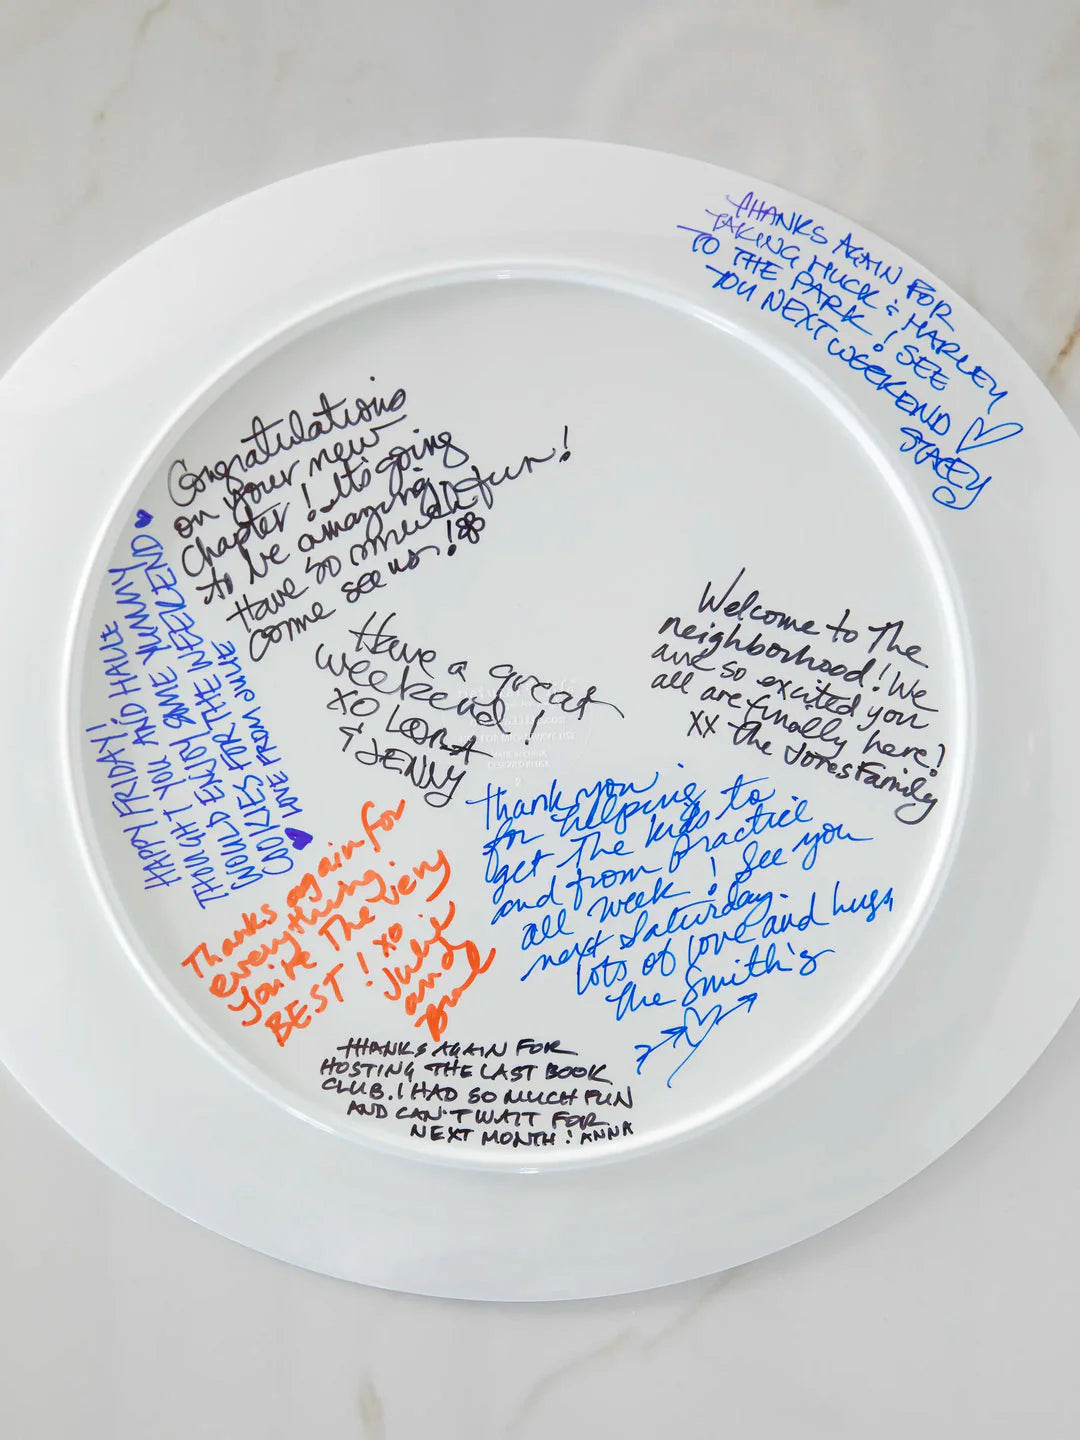 THANKS AGAIN FOR
TAKING HUCK & HARLEY
TO THE PARK! SEE
YOU NEXT WEEKEND
STACEY
Congratulations
on your new
chapter! It's going
to be amazing!
Have so much fun!
come see us!
HAPPY FRIDAY!
THOUGHT YOU AND HALLIE
WOULD ENJOY SOME YUMMY
COOKIES FOR THE WEEKEND
LOVE FROM JULIE
Have a great
weekend!
XO LORA
& JENNY
Welcome to the
neighborhood! We
are so excited you
all are finally here!
XX The Jones Family
Thank you
for helping
get the kids to
and from practice
all week! See you
next Saturday.
lots of love and hugs
The Smith's
Thanks again for
everything
You're the very
BEST! XO
Julie
and
THANKS AGAIN FOR
HOSTING THE LAST BOOK
CLUB. I HAD SO MUCH FUN
AND CAN'T WAIT FOR
NEXT MONTH! ANNA